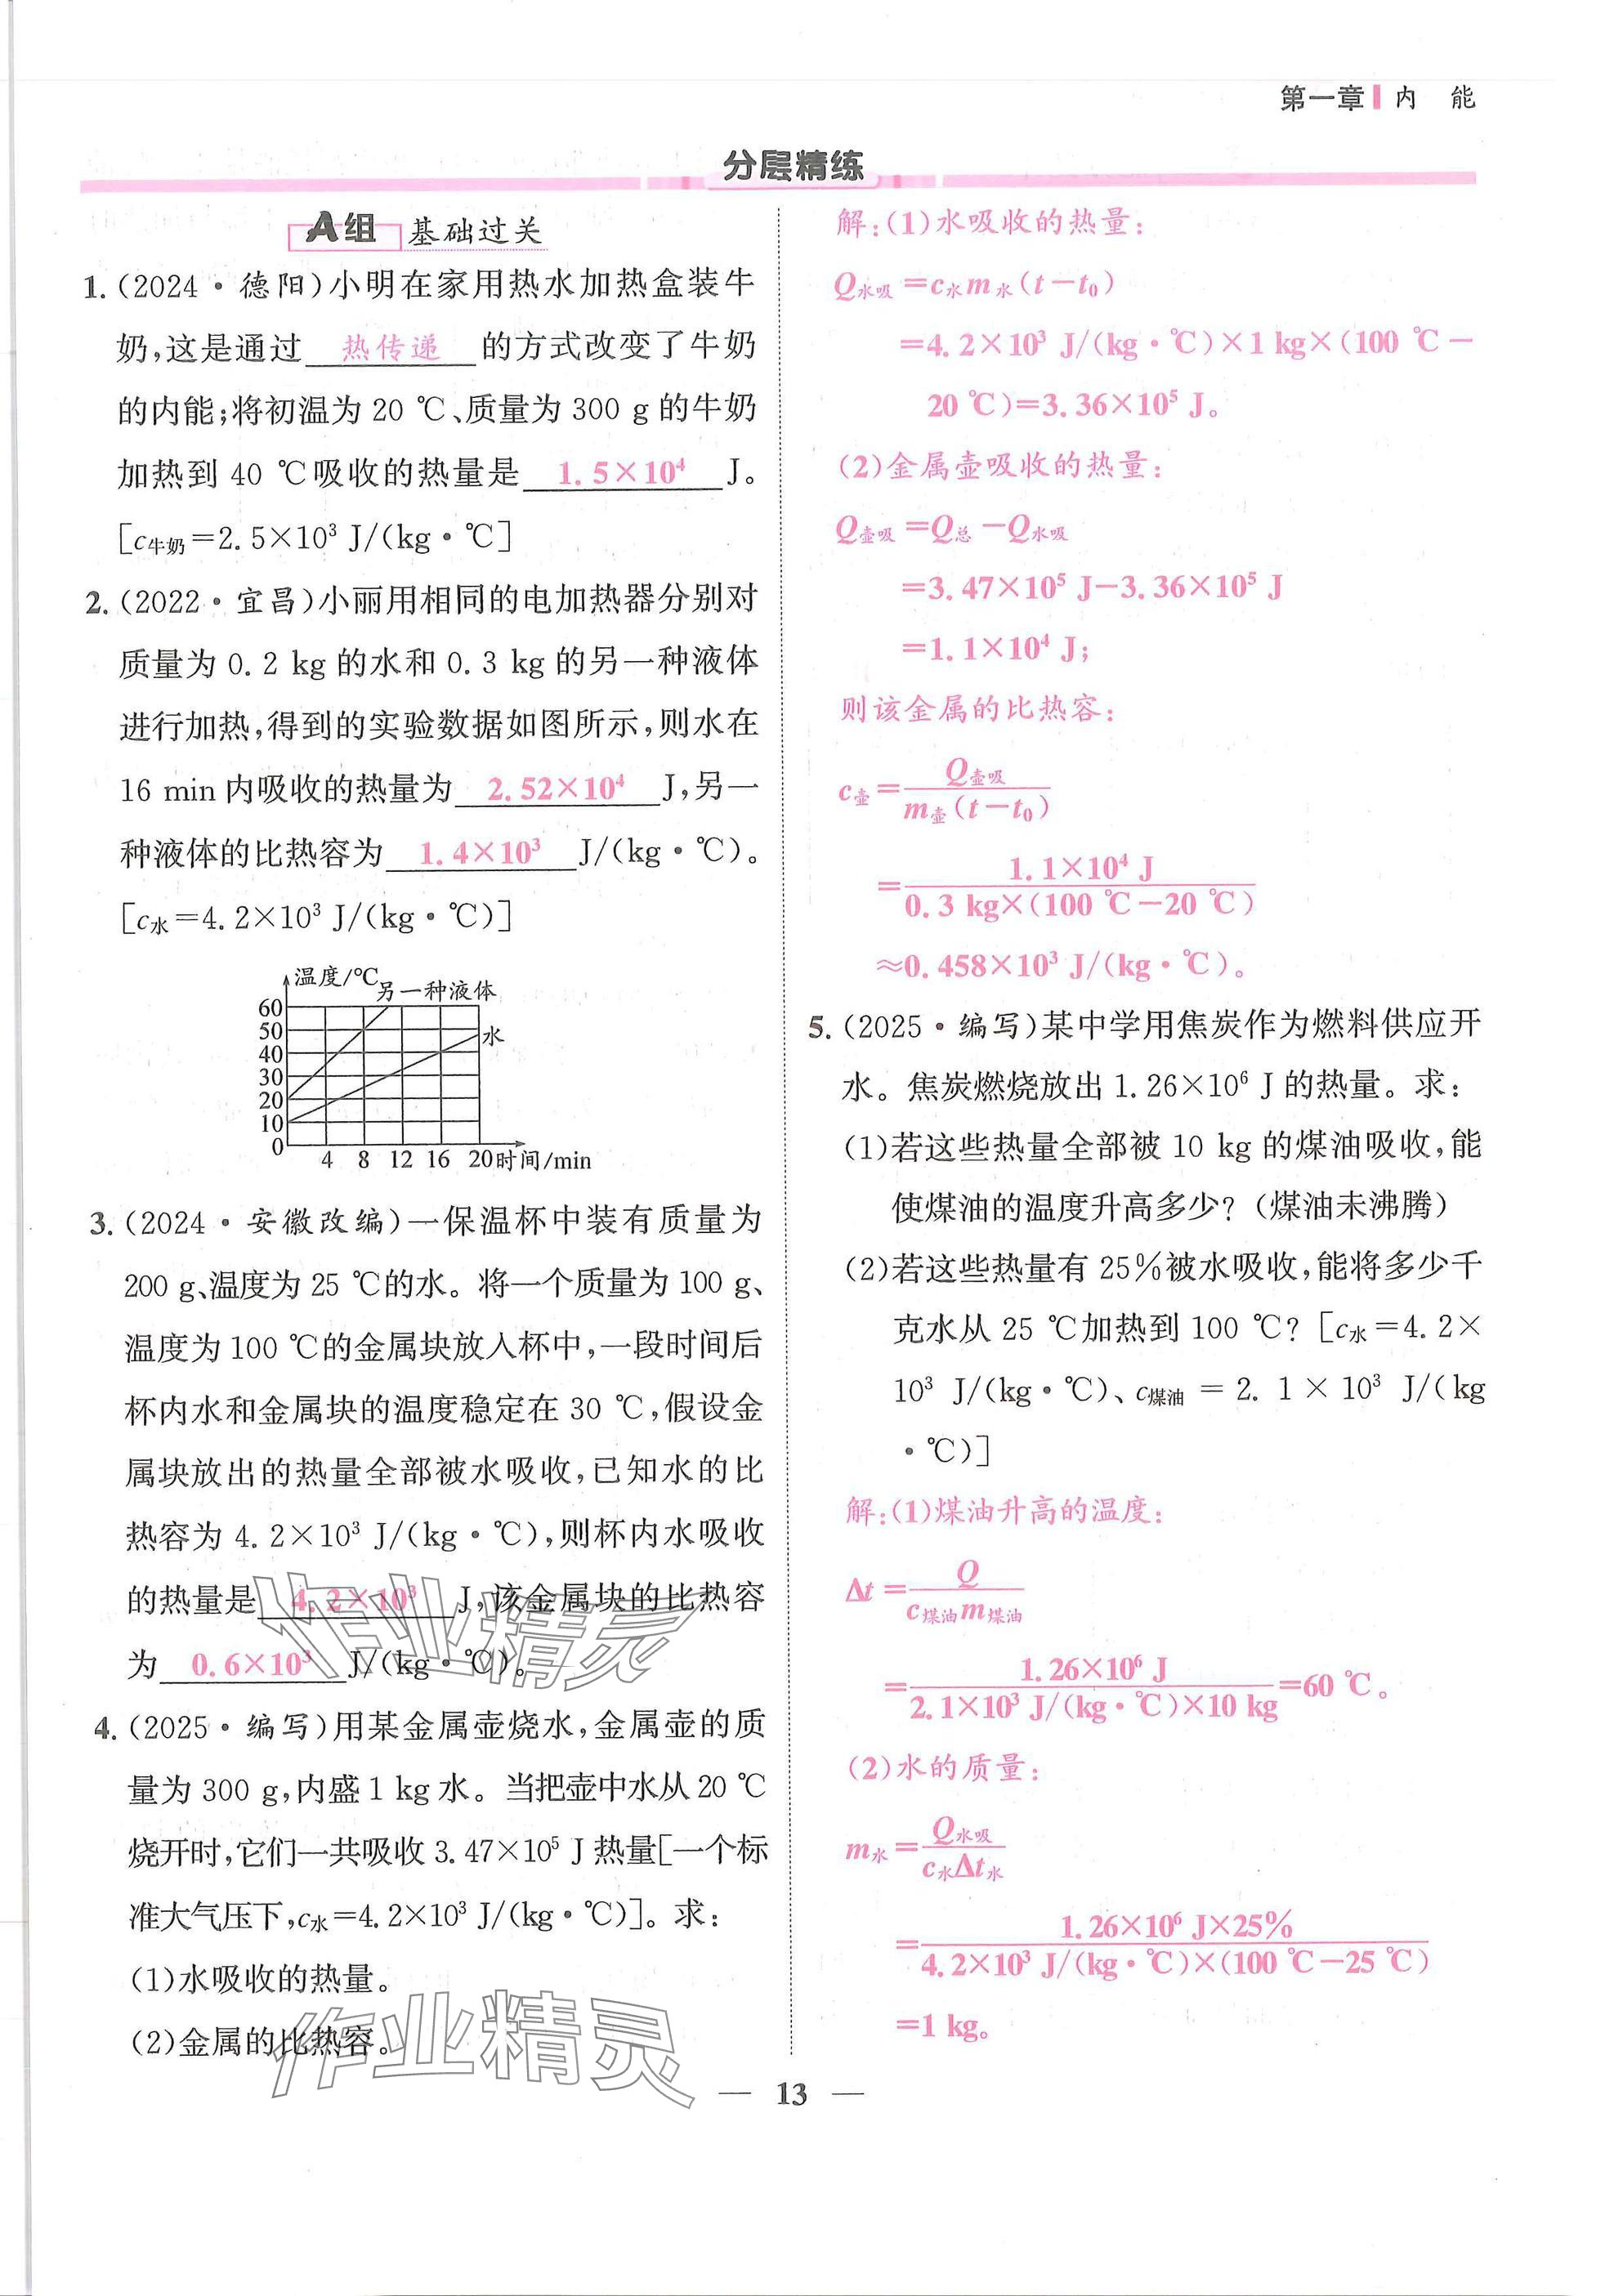 第一章 内 能
分层精练
A组 基础过关
1.(2024·德阳)小明在家用热水加热盒装牛
奶,这是通过 热传递 的方式改变了牛奶
的内能;将初温为 20 ℃、质量为 300 g 的牛奶
加热到 40 ℃吸收的热量是 1.5×10⁴ J。
[c牛奶=2.5×10³ J/(kg·℃]
2.(2022·宜昌)小丽用相同的电加热器分别对
质量为 0.2 kg 的水和 0.3 kg 的另一种液体
进行加热,得到的实验数据如图所示,则水在
16 min 内吸收的热量为 2.52×10⁴ J,另一
种液体的比热容为 1.4×10³ J/(kg·℃)。
[c水=4.2×10³ J/(kg·℃)]
温度/℃
另一种液体
水
60
50
40
30
20
10
0
4 8 12 16 20 时间/min
3.(2024·安徽改编)一保温杯中装有质量为
200 g、温度为 25 ℃的水。将一个质量为 100 g、
温度为 100 ℃的金属块放入杯中,一段时间后
杯内水和金属块的温度稳定在 30 ℃,假设金
属块放出的热量全部被水吸收,已知水的比
热容为 4.2×10³ J/(kg·℃),则杯内水吸收
的热量是 4.2×10³ J,该金属块的比热容
为 0.6×10³ J/(kg·℃)。
4.(2025·编写)用某金属壶烧水,金属壶的质
量为 300 g,内盛 1 kg 水。当把壶中水从 20 ℃
烧开时,它们一共吸收 3.47×10⁵ J 热量[一个标
准大气压下,c水=4.2×10³ J/(kg·℃)]。求:
(1)水吸收的热量。
(2)金属的比热容。
解:(1)水吸收的热量:
Q水吸=c水m水(t-t₀)
=4.2×10³ J/(kg·℃)×1 kg×(100 ℃-
20 ℃)=3.36×10⁵ J。
(2)金属壶吸收的热量:
Q壶吸=Q总-Q水吸
=3.47×10⁵ J-3.36×10⁵ J
=1.1×10⁴ J;
则该金属的比热容:
c壶=Q壶吸/m壶(t-t₀)
=1.1×10⁴ J/0.3 kg×(100 ℃-20 ℃)
≈0.458×10³ J/(kg·℃)。
5.(2025·编写)某中学用焦炭作为燃料供应开
水。焦炭燃烧放出 1.26×10⁶ J 的热量。求:
(1)若这些热量全部被 10 kg 的煤油吸收,能
使煤油的温度升高多少?(煤油未沸腾)
(2)若这些热量有 25%被水吸收,能将多少千
克水从 25 ℃加热到 100 ℃?[c水=4.2×
10³ J/(kg·℃)、c煤油=2.1×10³ J/(kg
·℃)]
解:(1)煤油升高的温度:
Δt=Q/c煤油m煤油
=1.26×10⁶ J/2.1×10³ J/(kg·℃)×10 kg=60 ℃。
(2)水的质量:
m水=Q水吸/c水Δt水
=1.26×10⁶ J×25%/4.2×10³ J/(kg·℃)×(100 ℃-25 ℃)
=1 kg。
作业精灵
作业精灵
— 13 —